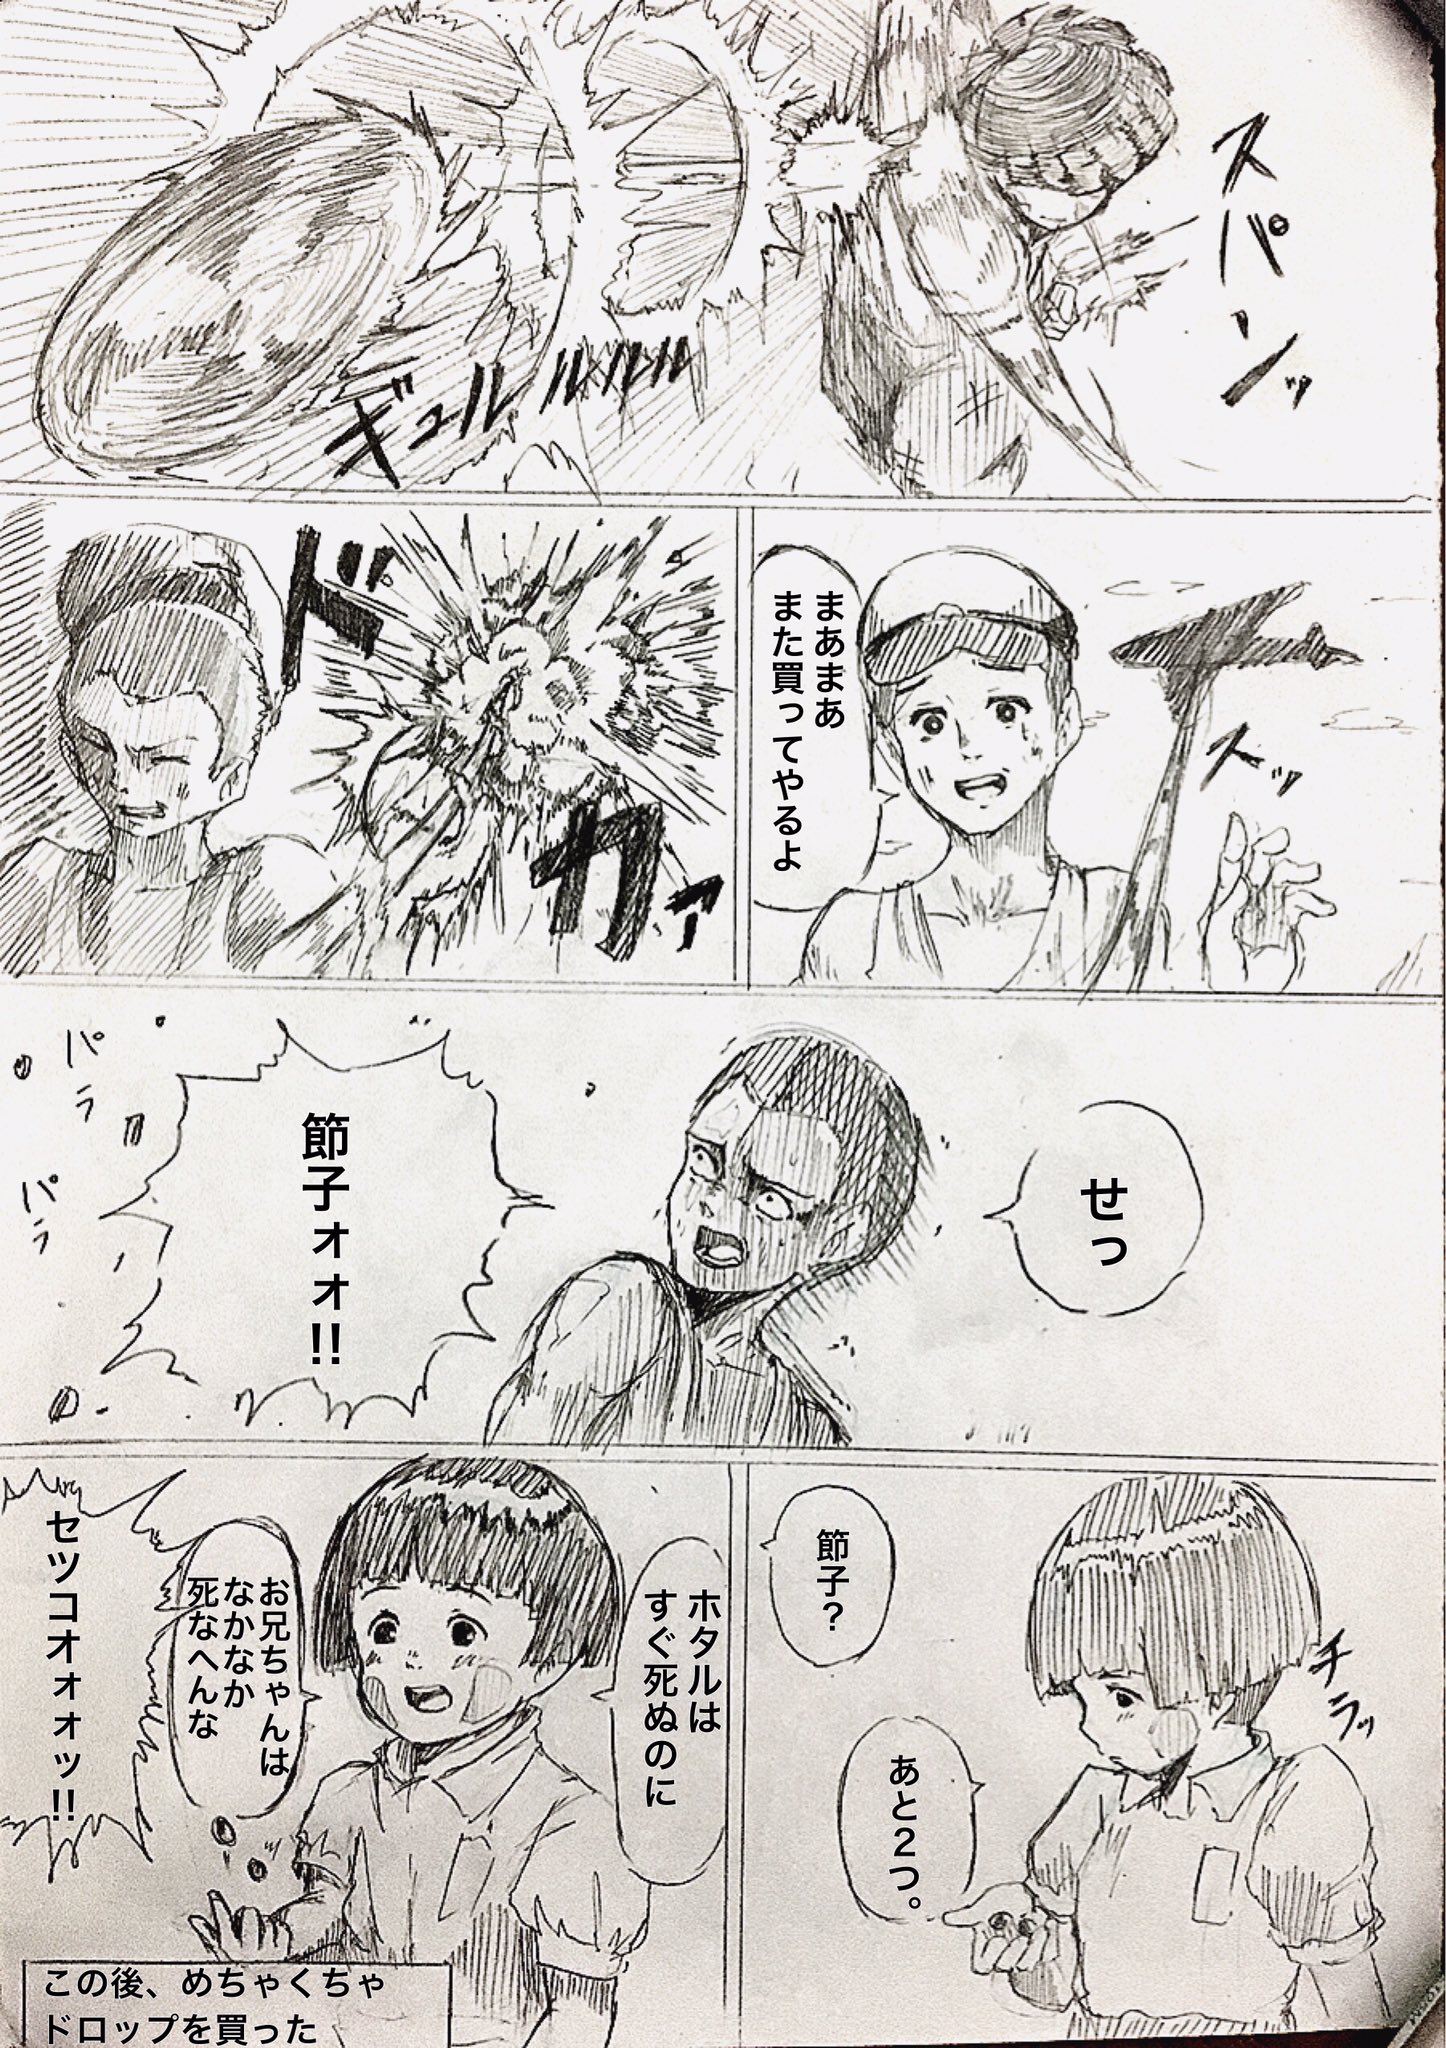 スパンッ
ギュルルルル
まあまあ
また買ってやるよ
ズッ
ドガァ
せっ
節子ォォ!!
パラ
パラ
チラッ
節子?
あと2つ。
ホタルは
すぐ死ぬのに
お兄ちゃんは
なかなか
死なへんな
セツコオォォッ!!
この後、めちゃくちゃ
ドロップを買った